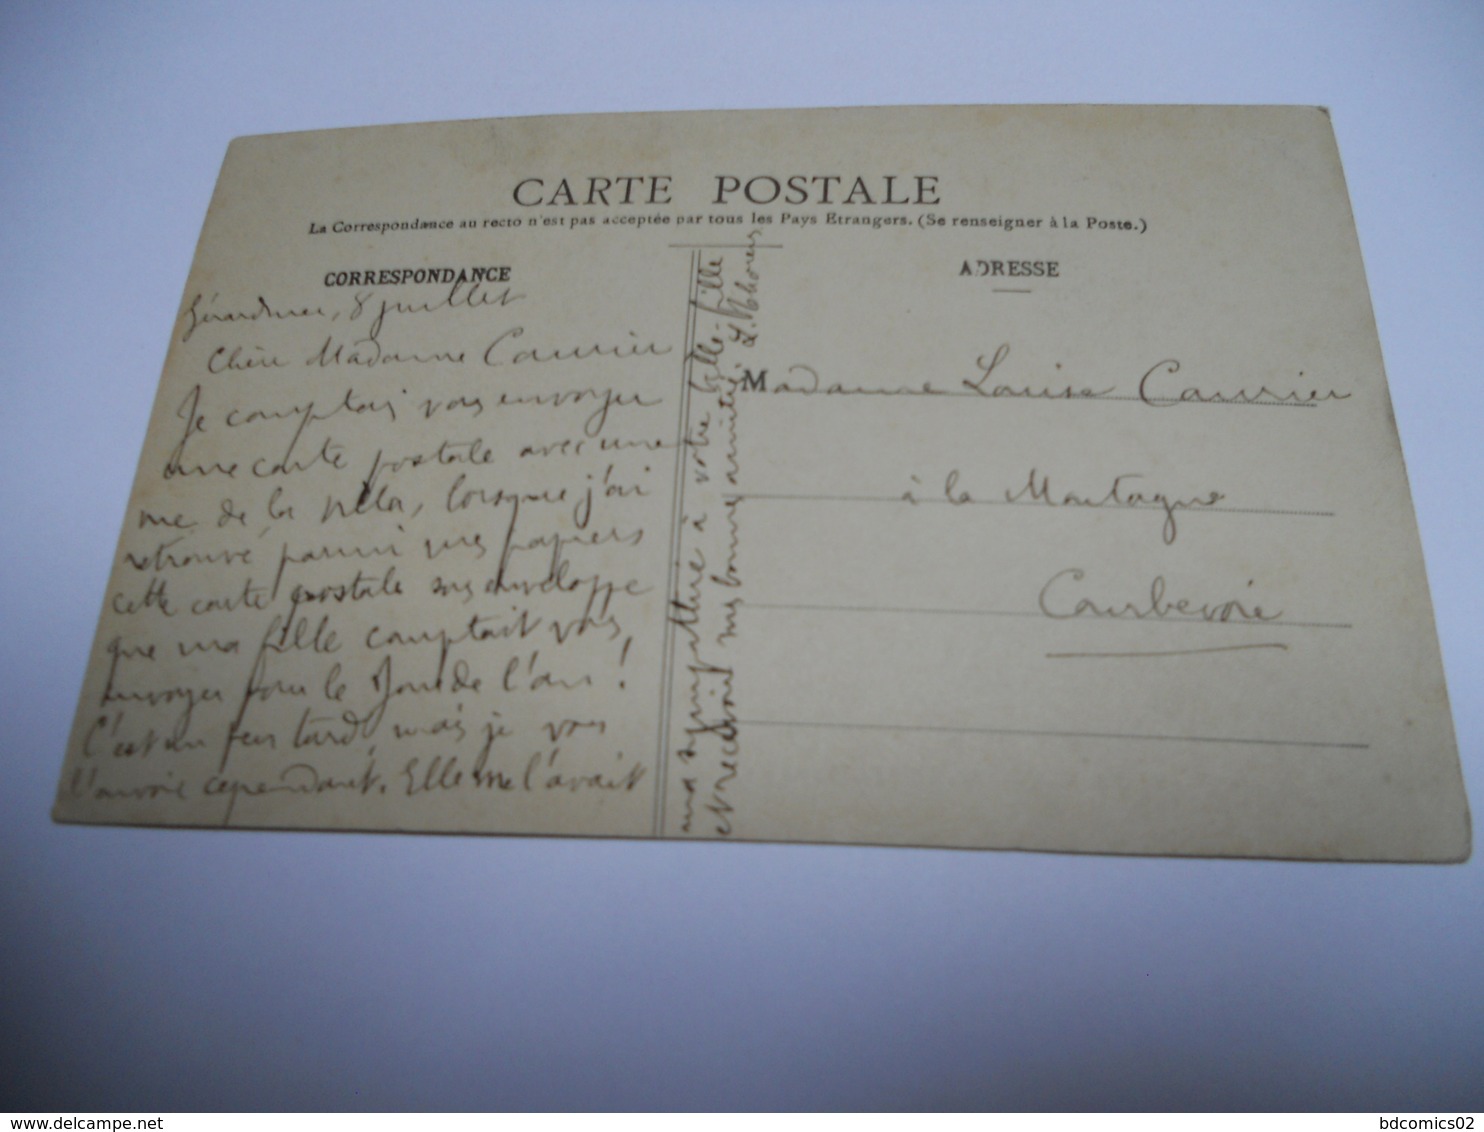 CARTE POSTALE
La Correspondance au recto n'est pas acceptée par tous les Pays Etrangers. (Se renseigner à la Poste.)
CORRESPONDANCE
Gérardmer, 8 juillet
Chère Madame Caurier
Je comptais vous envoyer
une carte postale avec une
vue de la villa, lorsque j'ai
retrouvé parmi mes papiers
cette carte postale sous enveloppe
que ma fille comptait vous
envoyer pour le Jour de l'an!
C'est un peu tard, mais je vous
l'envoie cependant. Elle me l'avait
ma sympathie à votre belle-fille
et recevoir mes bonnes amitiés
ADRESSE
Madame Louise Caurier
à la Montagne
Courbevoie
delcampe.net
bdcomics02